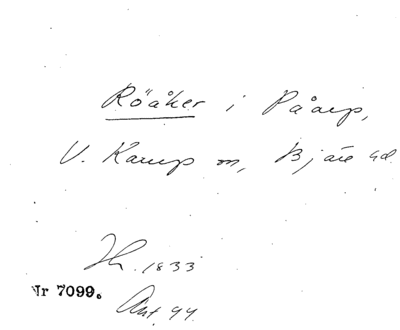 Röåker i Påarp,
V. Karup sn, Bjäre hd
Hh. 1833
Nr 7099.
Ant. 94.